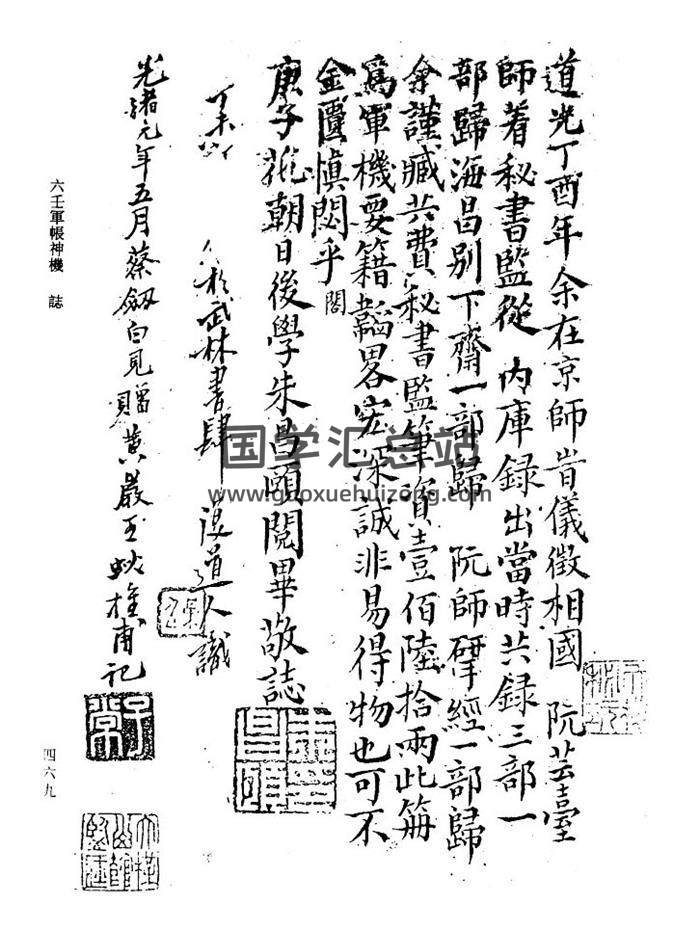 道光丁酉年余在京師旹儀徵相國 阮芸臺
師着秘書監從 內庫録出當時共録三部一
部歸海昌別下齋一部歸 阮師揅經一部歸
余謹臧共費秘書監筆資壹佰陸拾兩此冊
爲軍機要籍韜畧宏深誠非易得物也可不
金匱愼閟乎
閣
庚子花朝日後學朱昌頤閱畢敬誌
丁未 於武林書肆 道人識
光緒元年五月蔡 白兄贈黃嚴王 記
六壬軍帳神機 誌
四六九
国学汇总站
www.guoxuehuizong.com
朱昌頤
子常